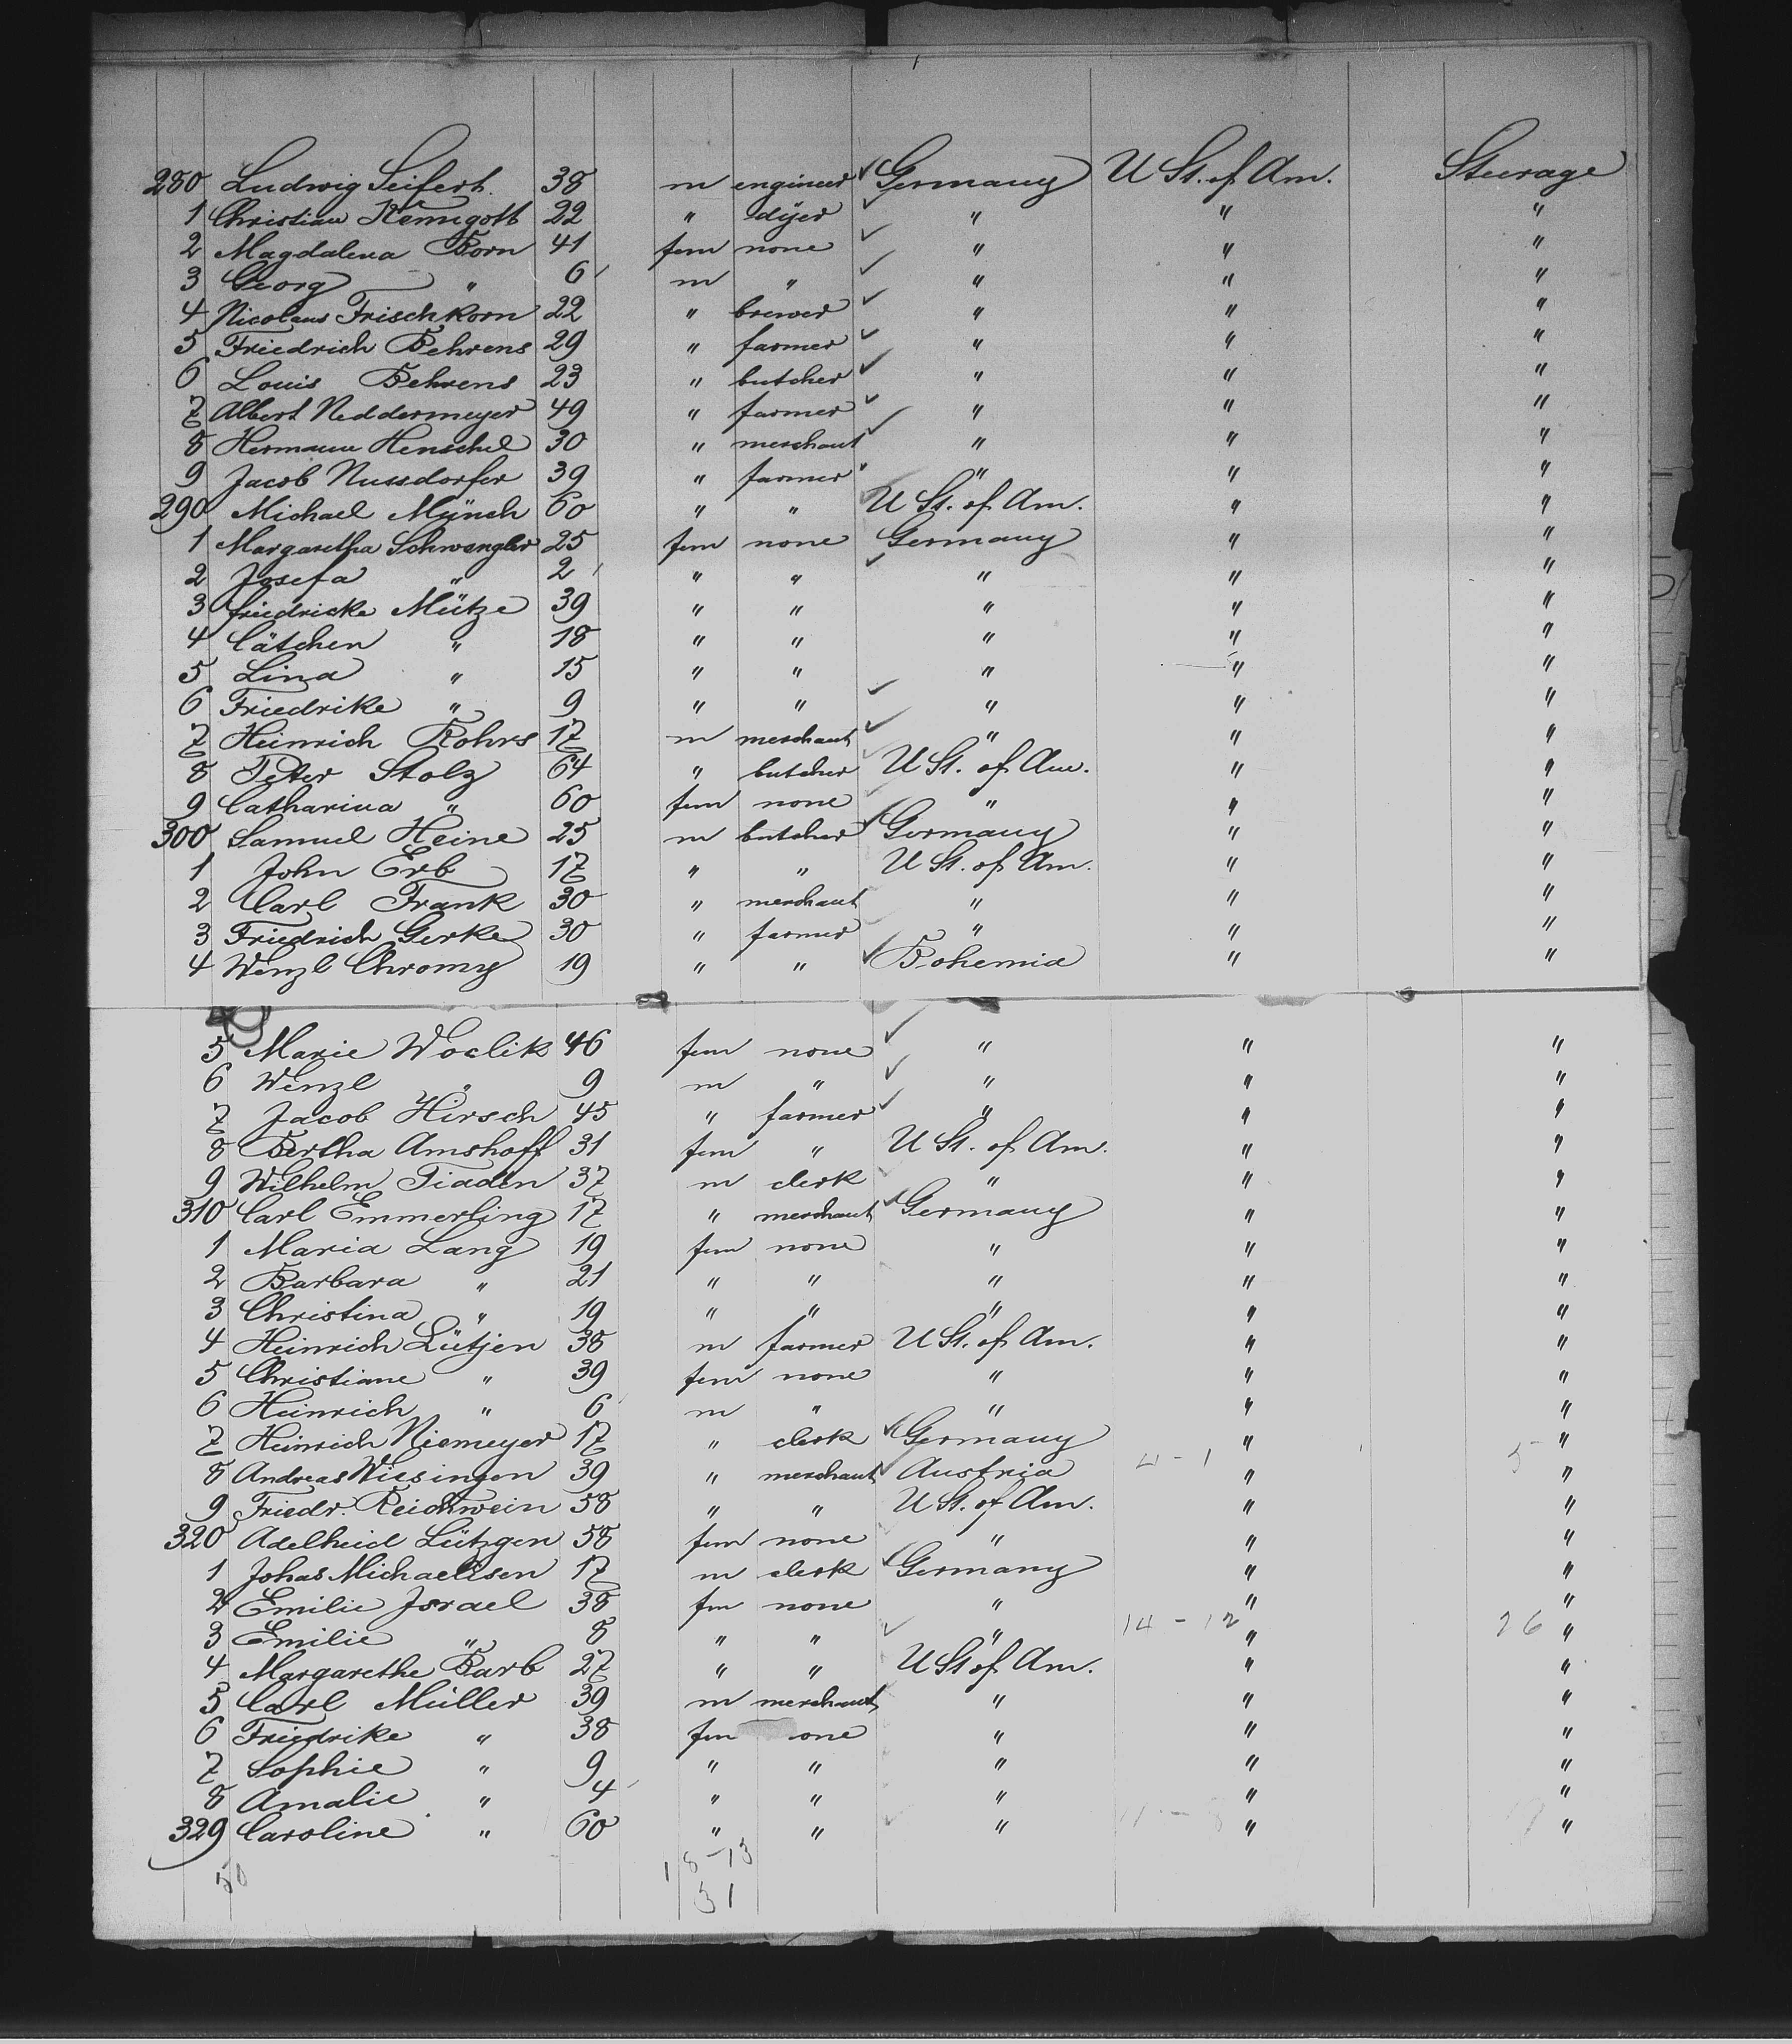 280 Ludwig Seifert. 38 m engineer Germany U St. of Am. Steerage
1 Christian Kemgott 22 " dyer " " "
2 Magdalena Born 41 fem none " " "
3 Georg " 6 m " " " "
4 Nicolaus Frischkorn 22 " brewer " " "
5 Friedrich Behrens 29 " farmer " " "
6 Louis Behrens 23 " butcher " " "
7 Albert Neddermeyer 49 " farmer " " "
8 Hermann Henschel 30 " merchant " " "
9 Jacob Nussdorfer 39 " farmer " " "
290 Michael Münch 60 " " U St. of Am. " "
1 Margaretha Schwengler 25 fem none Germany " "
2 Josefa " 2 " " " " "
3 Friedricke Mütze 39 " " " " "
4 Cätchen " 18 " " " " "
5 Lina " 15 " " " " "
6 Friedrike " 9 " " " " "
7 Heinrich Rohrs 17 m merchant " " "
8 Peter Stolz 64 " butcher U St. of Am. " "
9 Catharina " 60 fem none " " "
300 Samuel Heine 25 m butcher Germany " "
1 John Erb 17 " " U St. of Am. " "
2 Carl Frank 30 " merchant " " "
3 Friedrich Gerke 30 " farmer " " "
4 Wenzl Chromy 19 " " Bohemia " "
5 Marie Woclik 46 fem none " " "
6 Wenzl " 9 m " " " "
7 Jacob Hirsch 45 " farmer " " "
8 Bertha Amshoff 31 fem " U St. of Am. " "
9 Wilhelm Tiaden 37 m clerk " " "
310 Carl Emmerling 17 " merchant Germany " "
1 Maria Lang 19 fem none " " "
2 Barbara " 21 " " " " "
3 Christina " 19 " " " " "
4 Heinrich Lütjen 38 m farmer U St. of Am. " "
5 Christiane " 39 fem none " " "
6 Heinrich " 6 m " " " "
7 Heinrich Niemeyer 17 " clerk Germany " "
8 Andreas Wiesingen 39 " merchant Austria 4 - 1 " 5 "
9 Friedr. Reichwein 58 " " U St. of Am. " "
320 Adelheid Lützgen 58 fem none " " "
1 Johas Michaelisen 17 m clerk Germany " "
2 Emilie Israel 38 fm none " " "
3 Emilie " 8 " " " 14 - 12 " 26 "
4 Margarethe Barb 27 " " U St of Am. " "
5 Carl Müller 39 m merchant " " "
6 Friedrike " 38 fm one " " "
7 Sophie " 9 " " " " "
8 Amalie " 4 " " " " "
329 Caroline " 60 " " " " "
50 18 - 13
31